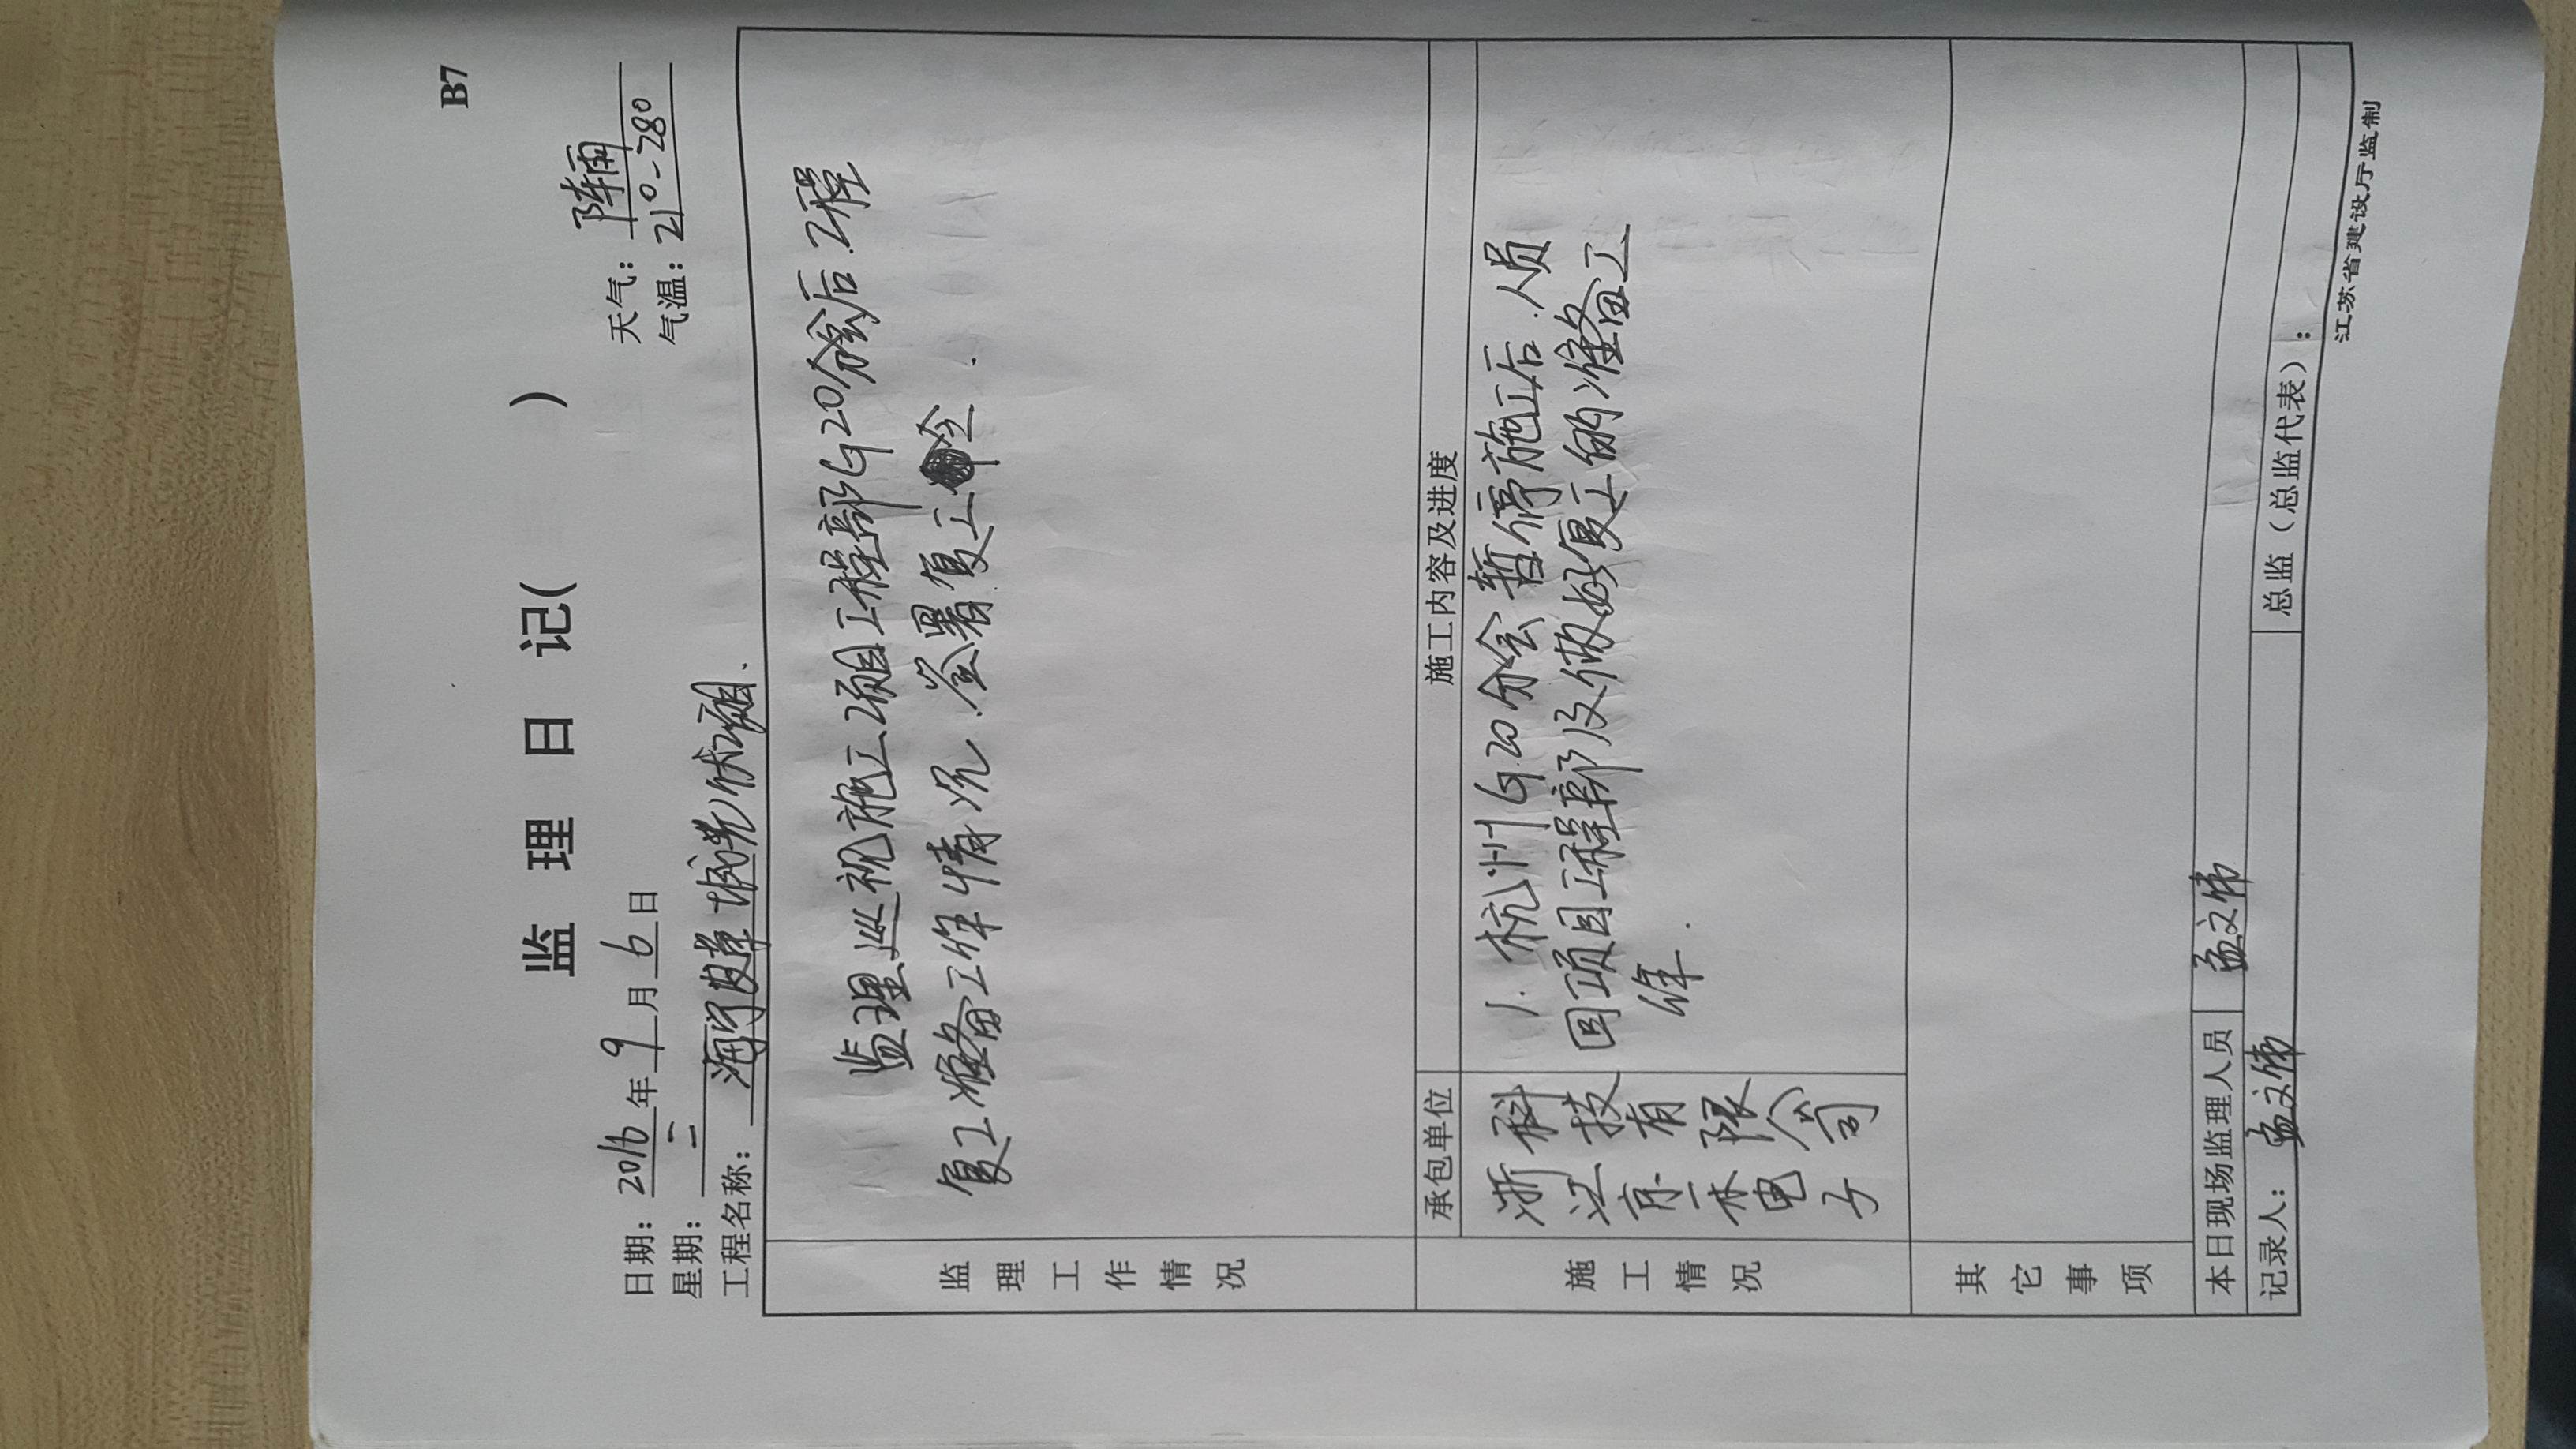 B7
监 理 日 记( )
日期：2016年9月6日 天气：阵雨
星期：二 气温：21°-28°
工程名称：海宁皮革城光伏项目.
监理工作情况
监理巡视施工项目工程部G20峰会后.工程
复工准备工作情况.签署复工令.
施工情况
承包单位 施工内容及进度
浙江京林电子科技有限公司
1.杭州G20会暂停施工后.人员
回项目工程部及做好复工的准备工
作.
其它事项
本日现场监理人员 孟文伟
记录人：孟文伟 总监（总监代表）：
江苏省建设厅监制